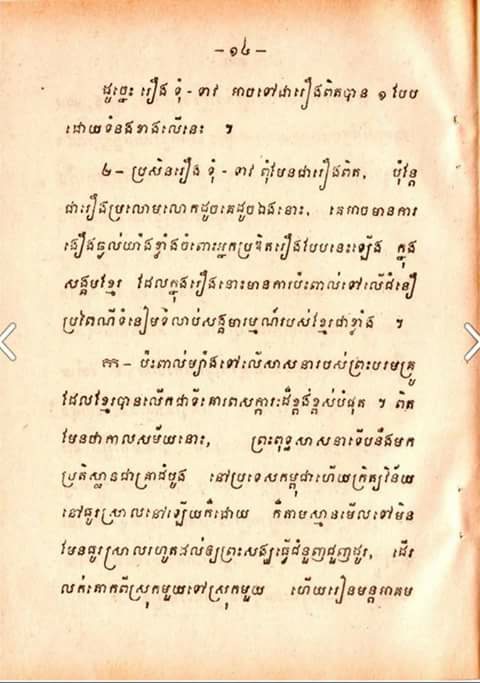 - ១៤ -
ដូច្នេះ រឿង ទុំ - ទាវ អាចទៅជារឿងពិតបាន ១ បែប
ដោយទំនងខាងលើនេះ ។
២ - ប្រសិនរឿង ទុំ - ទាវ ពុំមែនជារឿងពិត, ប៉ុន្តែ
ជារឿងប្រលោមលោកដូចគេដូចឯងនោះ, គេអាចមានការ
ងឿងឆ្ងល់យ៉ាងខ្លាំងចំពោះអ្នកប្រឌិតរឿងបែបនេះឡើង ក្នុង
សង្គមខ្មែរ ដែលក្នុងរឿងនោះមានការប៉ះពាល់ទៅលើជំនឿ
ប្រពៃណីទំនៀមទំលាប់សង្គមារម្មណ៍របស់ខ្មែរជាខ្លាំង ។
កក - ប៉ះពាល់ម្យ៉ាងទៅលើសាសនារបស់ព្រះបរមគ្រូ
ដែលខ្មែរបានលើកជាទីគោរពសក្ការៈដ៏ខ្ពង់ខ្ពស់បំផុត ។ ពិត
មែនថាកាលសម័យនោះ, ព្រះពុទ្ធសាសនាទើបនឹងមក
ប្រតិស្ឋានជាគ្រាដំបូង នៅប្រទេសកម្ពុជាហើយក្រិត្យវិន័យ
នៅធូរស្រាលនៅឡើយក៏ដោយ ក៏តាមស្មានមើលទៅមិន
មែនធូរស្រាលរហូតដល់ឲ្យព្រះសង្ឃធ្វើជំនួញជួញដូរ, ដើរ
លក់គោកពីស្រុកមួយទៅស្រុកមួយ ហើយរៀនមន្តអាគម